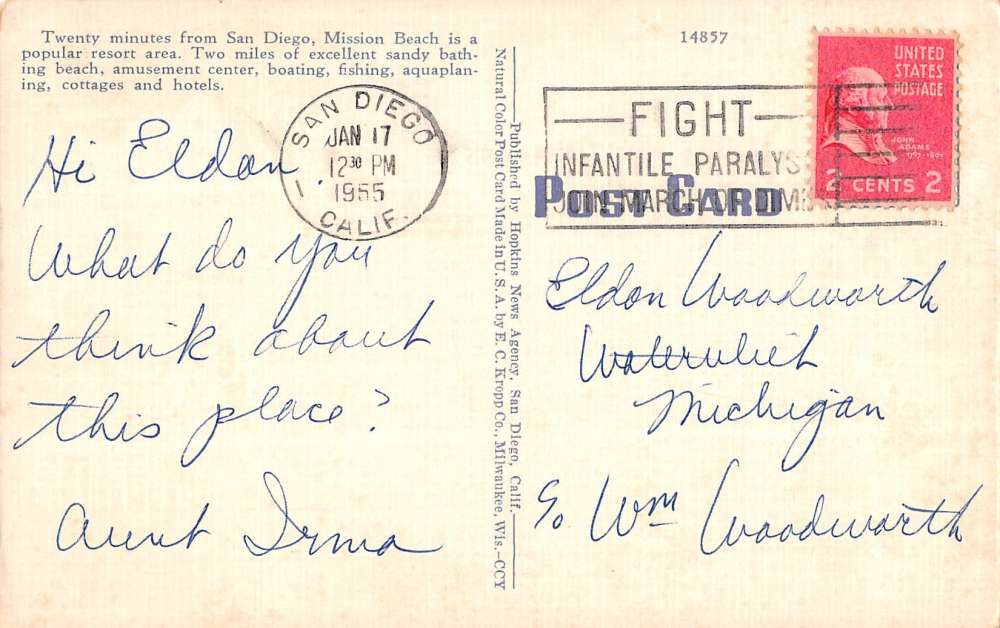 Twenty minutes from San Diego, Mission Beach is a
popular resort area. Two miles of excellent sandy bath-
ing beach, amusement center, boating, fishing, aquaplan-
ing, cottages and hotels.
14857
UNITED
STATES
POSTAGE
JOHN
ADAMS
1797-1801
2 CENTS 2
SAN DIEGO
JAN 17
12 30 PM
1955
CALIF.
1
FIGHT
INFANTILE PARALYS
JOIN MARCH OF DIM
POST CARD
Hi Eldon.
What do you
think about
this place?
Aunt Irma
—Published by Hopkins News Agency, San Diego, Calif.—
Natural Color Post Card Made in U. S. A. by E. C. Kropp Co., Milwaukee, Wis.—CCY
Eldon Woodworth
Watervliet
Michigan
c/o Wm Woodworth